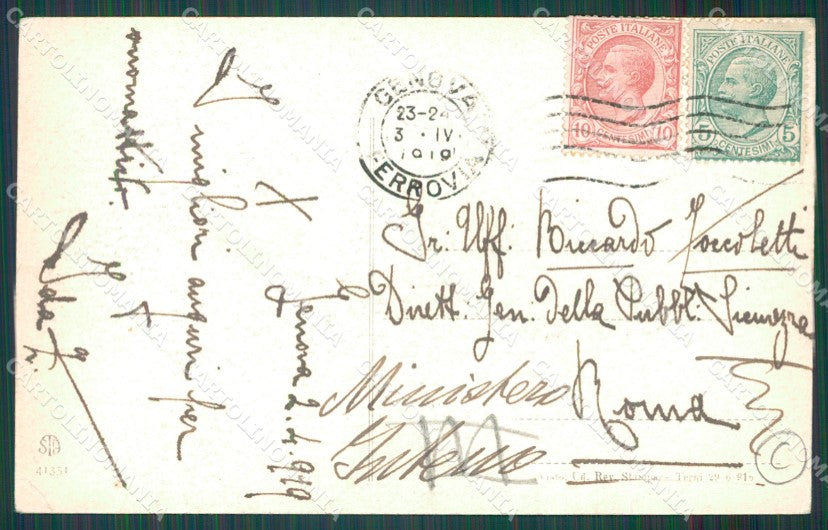 POSTE ITALIANE
10 CENTESIMI 10
POSTE ITALIANE
5 CENTESIMI 5
GENOVA
23-24
3 · IV
1919
FERROVIA
Gr: Uff: Riccardo Zoccoletti
Dirett. Gen. della Pubbl. Sicurezza
Roma
Ministero
Interno
Genova 2.4.919
I migliori auguri per
onomastico.
STA
41351
Ed. Rev. Stampa - Terni 29-6-915
C
CARTOLINOMANIA